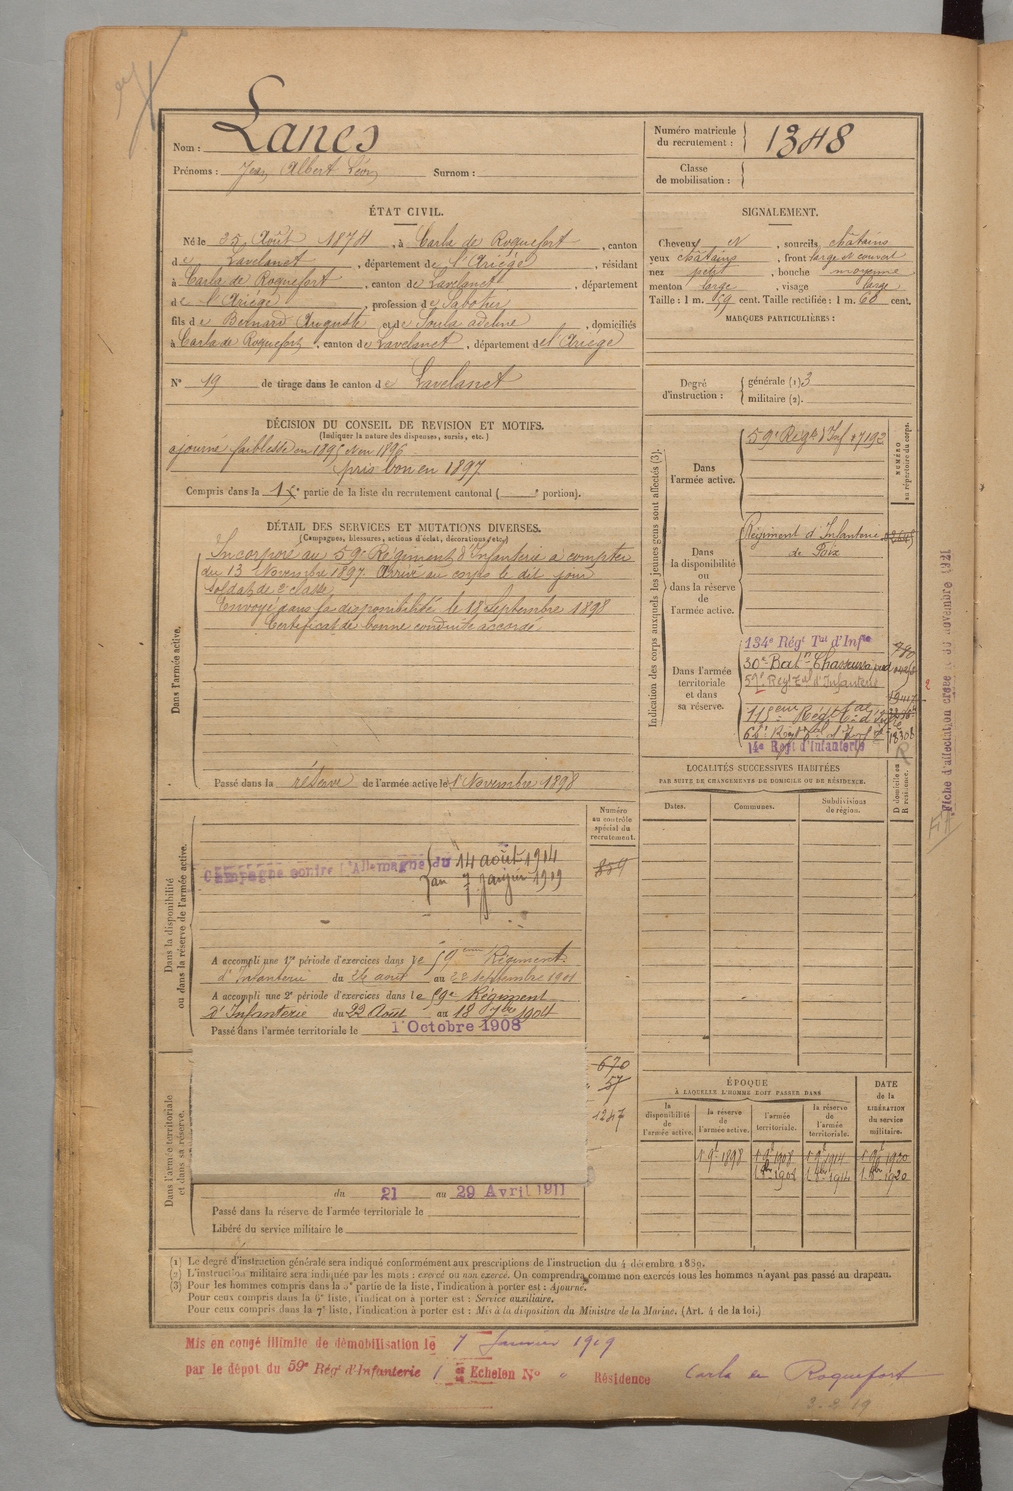 Nom : Lanes
Prénoms : Jean Albert Léon Surnom :
Numéro matricule du recrutement : 1348
Classe de mobilisation :
ÉTAT CIVIL.
Né le 25 Août 1874, à Carla de Roquefort, canton
de Lavelanet, département de l'Ariège, résidant
à Carla de Roquefort, canton de Lavelanet, département
de l'Ariège, profession de Sabotier
fils de Bernard Auguste et de Soula adeline, domiciliés
à Carla de Roquefort, canton de Lavelanet, département de l'Ariège
N° 19 de tirage dans le canton de Lavelanet
SIGNALEMENT.
Cheveux N, sourcils châtains
yeux châtains, front large et couvert
nez petit, bouche moyenne
menton large, visage large
Taille : 1 m. 59 cent. Taille rectifiée : 1 m. 60 cent.
MARQUES PARTICULIÈRES :
Degré d'instruction : générale (1) 3
militaire (2).
DÉCISION DU CONSEIL DE REVISION ET MOTIFS.
(Indiquer la nature des dispenses, sursis, etc.)
ajourné faiblesse en 1895 et en 1896
pris bon en 1897
Compris dans la 1e partie de la liste du recrutement cantonal ( portion).
DÉTAIL DES SERVICES ET MUTATIONS DIVERSES.
(Campagnes, blessures, actions d'éclat, décorations, etc.)
Dans l'armée active.
Incorporé au 59e Régiment d'Infanterie à compter
du 13 Novembre 1897. Arrivé au corps le dit jour
soldat de 2e classe
Envoyé dans la disponibilité le 18 Septembre 1898
Certificat de bonne conduite accordé
Passé dans la réserve de l'armée active le 1 Novembre 1898
Indication des corps auxquels les jeunes gens sont affectés (3).
NUMÉRO au répertoire du corps.
Dans l'armée active.
59e Regt d'Inf
Dans la disponibilité ou dans la réserve de l'armée active.
Régiment d'Infanterie
de Foix
Dans l'armée territoriale et dans sa réserve.
134e Régt Tal d'Infie
30e Batn Chasseurs
57e Regt Tal d'Infanterie
115eme Régt Tal d'Inf
14e Regt d'Infanterie
Fiche d'affectation créée novembre 1921
LOCALITÉS SUCCESSIVES HABITÉES
PAR SUITE DE CHANGEMENTS DE DOMICILE OU DE RÉSIDENCE.
Dates. Communes. Subdivisions de région. D domicile ou R résidence.
Dans la disponibilité ou dans la réserve de l'armée active.
Numéro au contrôle spécial du recrutement.
Campagne contre l'Allemagne du 14 août 1914
au 7 janvier 1919
A accompli une 1re période d'exercices dans le 59eme Régiment
d'Infanterie du 26 août au 22 septembre 1901
A accompli une 2e période d'exercices dans le 59e Régiment
d'Infanterie du 22 Août au 18 7bre 1904
Passé dans l'armée territoriale le 1 Octobre 1908
Dans l'armée territoriale et dans sa réserve.
670
57
1247
du 21 au 29 Avril 1911
Passé dans la réserve de l'armée territoriale le
Libéré du service militaire le
ÉPOQUE
À LAQUELLE L'HOMME DOIT PASSER DANS
DATE de la LIBÉRATION du service militaire.
la disponibilité de l'armée active. la réserve de l'armée active. l'armée territoriale. la réserve de l'armée territoriale.
(1) Le degré d'instruction générale sera indiqué conformément aux prescriptions de l'instruction du 4 décembre 1889.
(2) L'instruction militaire sera indiquée par les mots : exercé ou non exercé. On comprendra comme non exercés tous les hommes n'ayant pas passé au drapeau.
(3) Pour les hommes compris dans la 5e partie de la liste, l'indication à porter est : Ajourné.
Pour ceux compris dans la 6e liste, l'indication à porter est : Service auxiliaire.
Pour ceux compris dans la 7e liste, l'indication à porter est : Mis à la disposition du Ministre de la Marine. (Art. 4 de la loi.)
Mis en congé illimité de démobilisation le 7 Janvier 1919
par le dépôt du 59e Régt d'Infanterie Echelon N° Résidence Carla de Roquefort